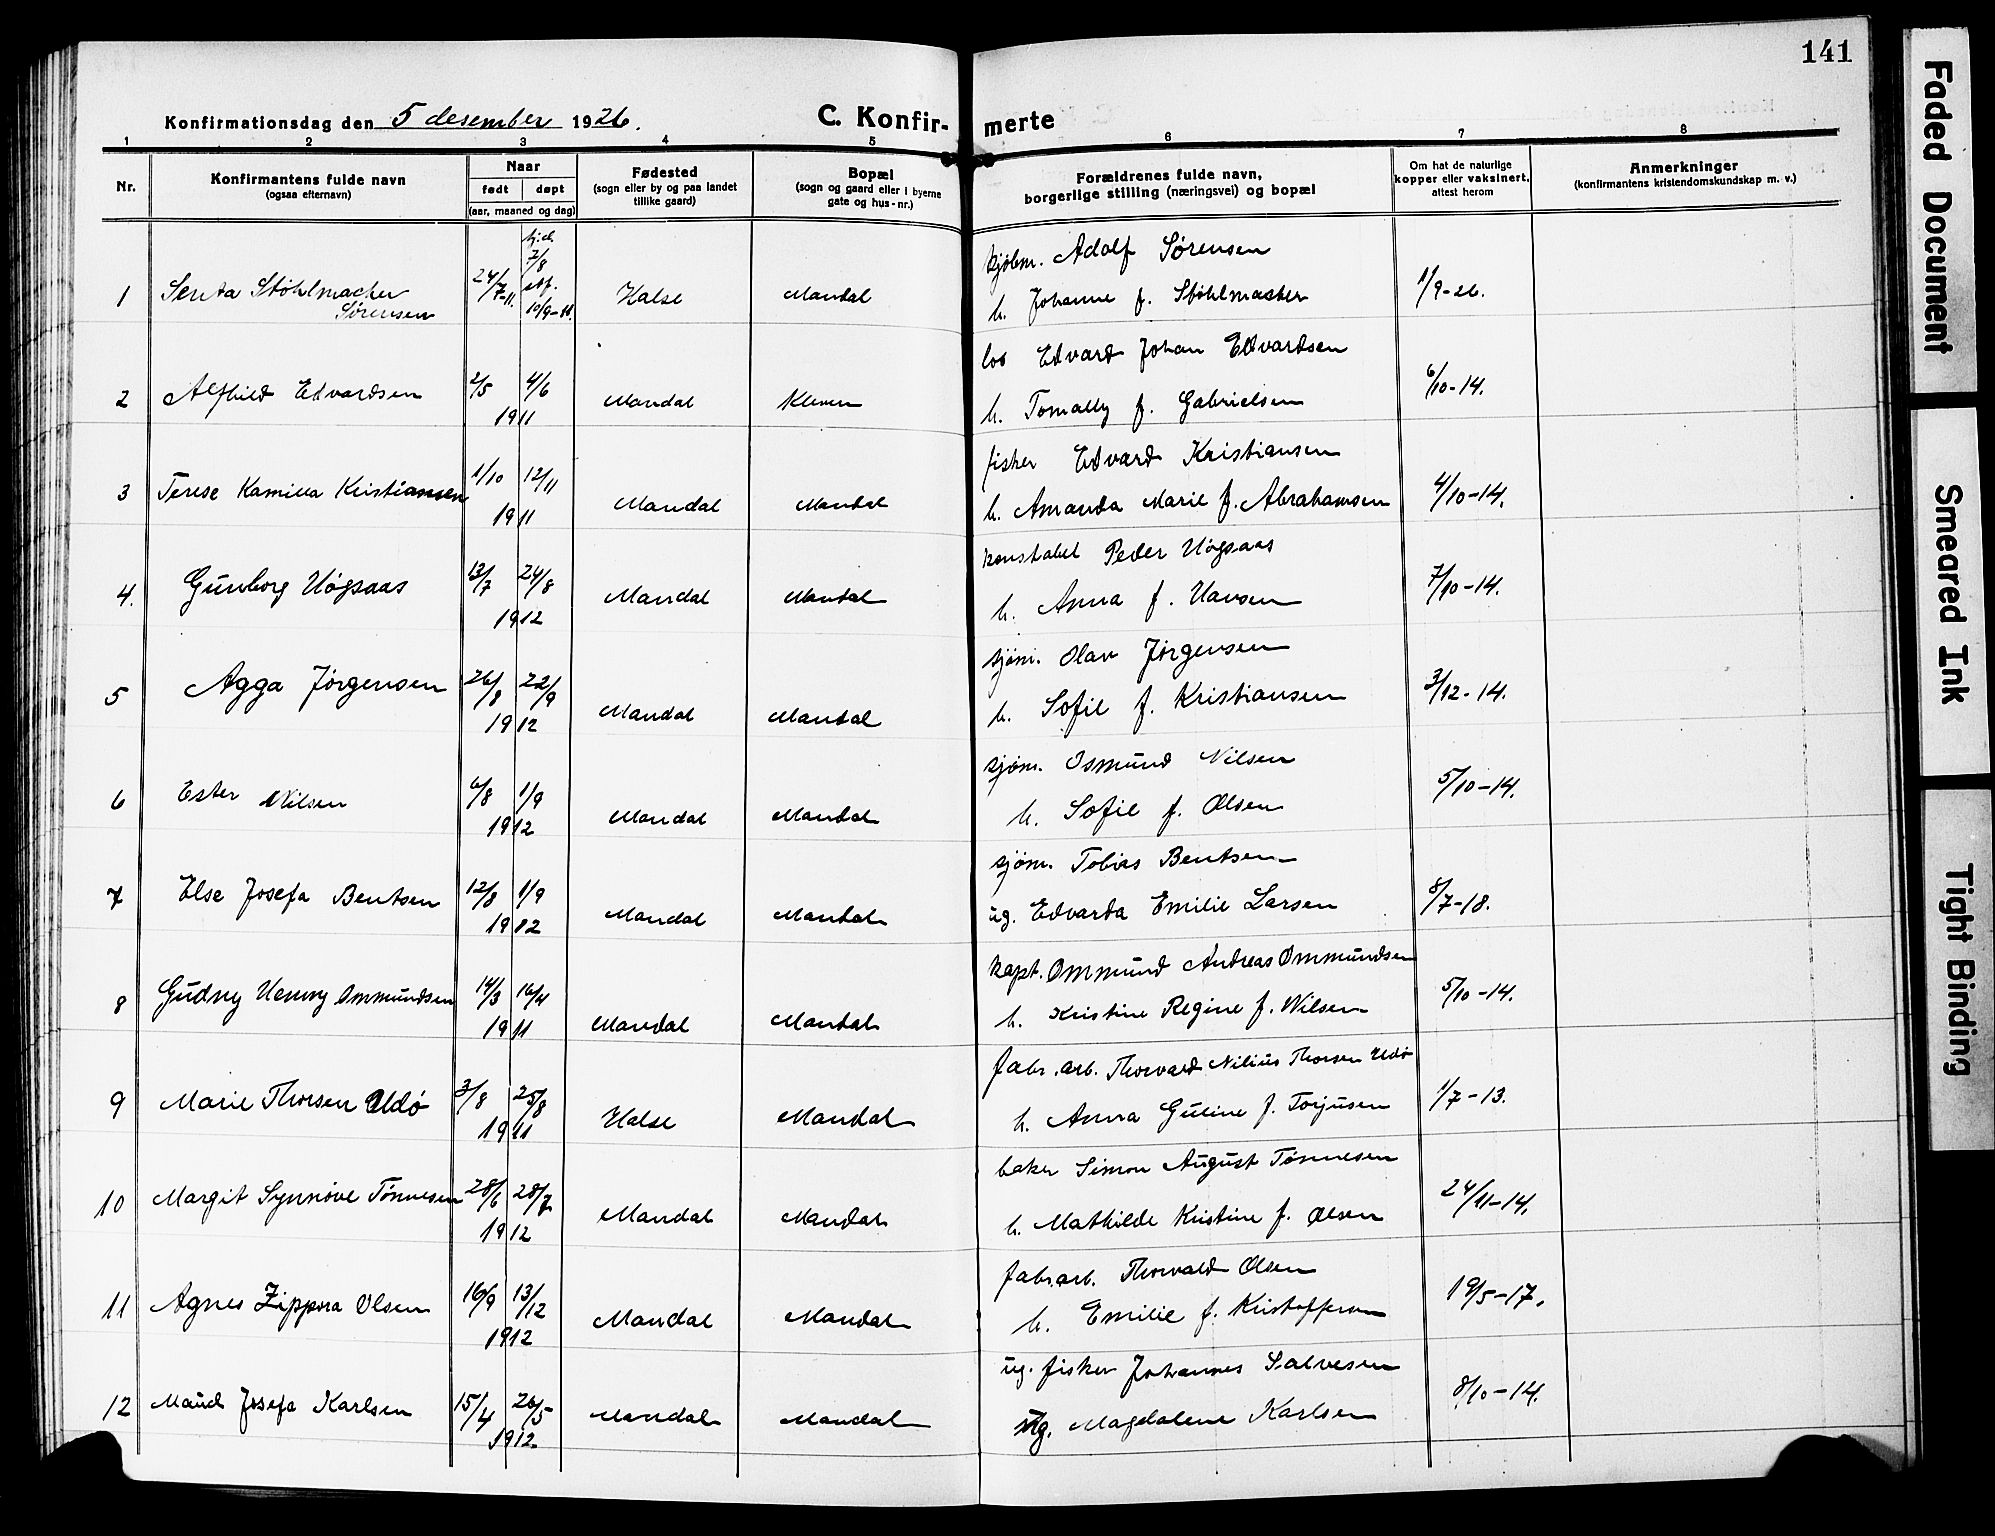 141
Konfirmationsdag den 5 desember 1926.
C. Konfirmerte
1 2 3 4 5 6 7 8
Nr.
Konfirmantens fulde navn
(ogsaa efternavn)
Naar
født døpt
(aar, maaned og dag)
Fødested
(sogn eller by og paa landet
tillike gaard)
Bopæl
(sogn og gaard eller i byerne
gate og hus-nr.)
Forældrenes fulde navn,
borgerlige stilling (næringsvei) og bopæl
Om hat de naturlige
kopper eller vaksinert,
attest herom
Anmerkninger
(konfirmantens kristendomskundskap m. v.)
hjd.
7/8
kjøbm. Adolf Sørensen
1 Senta Støhlmacher Sørensen 24/7-11. stf. 10/9-11. Halse Mandal h. Johanne f. Støhlmacher 1/9-26.
los Edvard Johan Edvardsen
2 Alfhild Edvardsen 2/5 4/6 Mandal Kleven h. Tomally f. Gabrielsen 6/10-14.
1911
fisker Edvard Kristiansen
3 Terese Kamilla Kristiansen 1/10 12/11 Mandal Mandal h. Amanda Marie f. Abrahamsen 4/10-14.
1911
konstabel Peder Høgsaas
4. Gunborg Høgsaas 13/7 24/8 Mandal Mandal h. Anna f. Hansen 7/10-14.
1912
sjøm. Olav Jørgensen
5 Agga Jørgensen 26/8 22/9 Mandal Mandal h. Sofie f. Kristiansen 3/12-14.
1912
sjøm. Osmund Nilsen
6 Ester Nilsen 6/8 1/9 Mandal Mandal h. Sofie f. Olsen 5/10-14.
1912
sjøm. Tobias Bentsen
7 Else Josefa Bentsen 12/8 1/9 Mandal Mandal ug. Edvarda Emilie Larsen 8/7-18.
1912
kapt. Ommund Andreas Ommundsen
8 Gudny Henny Ommundsen 14/3 16/4 Mandal Mandal h. Kristine Regine f. Nilsen 5/10-14.
1911
fabr.arb. Thorvard Nilius Thorsen Udø
9 Marie Thorsen Udø 3/8 25/8 Halse Mandal h. Anna Guline f. Torjusen 1/7-13.
1911
baker Simon August Tønnesen
10 Margit Synnøve Tønnesen 28/6 28/7 Mandal Mandal h. Mathilde Kristine f. Olsen 24/11-14.
1912
fabr.arb. Thorvald Olsen
11 Agnes Zippora Olsen 16/9 13/12 Mandal Mandal h. Emilie f. Kristoffersen 19/5-17.
1912
ug. fisker Johannes Salvesen
12 Maud Josefa Karlsen 15/4 26/5 Mandal Mandal ug. Magdalene Karlsen 8/10-14.
1912.
Faded Document
Smeared Ink
Tight Binding